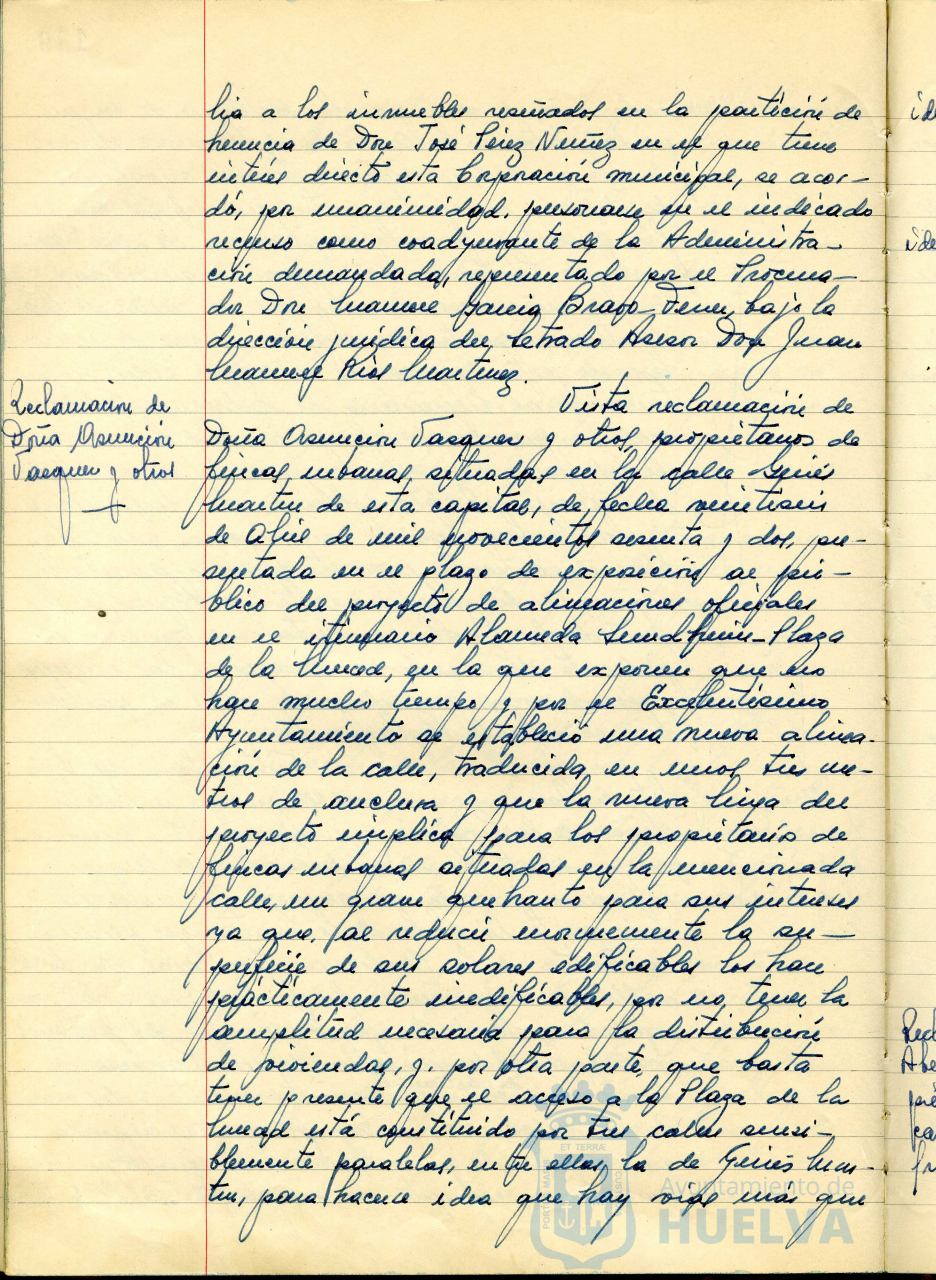 lia a los inmuebles reseñados en la partición de
herencia de Don José Pérez Nuñez en el que tiene
interés directo esta Corporación municipal, se acor-
dó, por unanimidad, personarse en el indicado
recurso como coadyuvante de la Administra-
ción demandada, representado por el Procura-
dor Don Manuel García Bravo-Ferrer, bajo la
dirección jurídica del Letrado Asesor Don Juan
Manuel Rios Martinez.
Reclamación de
Doña Asunción
Vasquez y otros
Vista reclamación de
Doña Asunción Vasquez y otros, propietarios de
fincas urbanas situadas en la calle Ginés
Martin de esta capital, de fecha veintiseis
de Abril de mil novecientos sesenta y dos, pre-
sentada en el plazo de exposición al pú-
blico del proyecto de alineaciones oficiales
en el itinerario Alameda Sundheim-Plaza
de la Merced, en la que exponen que no
hace mucho tiempo y por el Excelentísimo
Ayuntamiento se estableció una nueva alinea-
ción de la calle, traducida en unos tres me-
tros de anchura y que la nueva linea del
proyecto implica para los propietarios de
fincas urbanas situadas en la mencionada
calle, un grave quebranto para sus intereses
ya que, al reducir enormemente la su-
perficie de sus solares edificables los hace
prácticamente inedificables, por no tener la
amplitud necesaria para la distribución
de viviendas, y, por otra parte, que basta
tener presente que el acceso a la Plaza de la
Merced está constituido por tres calles sensi-
blemente paralelas, entre ellas la de Ginés Mar-
tin, para hacerse idea que hay vias más que
ide
ide
Abe
ET TERRA
Ayuntamiento de
HUELVA